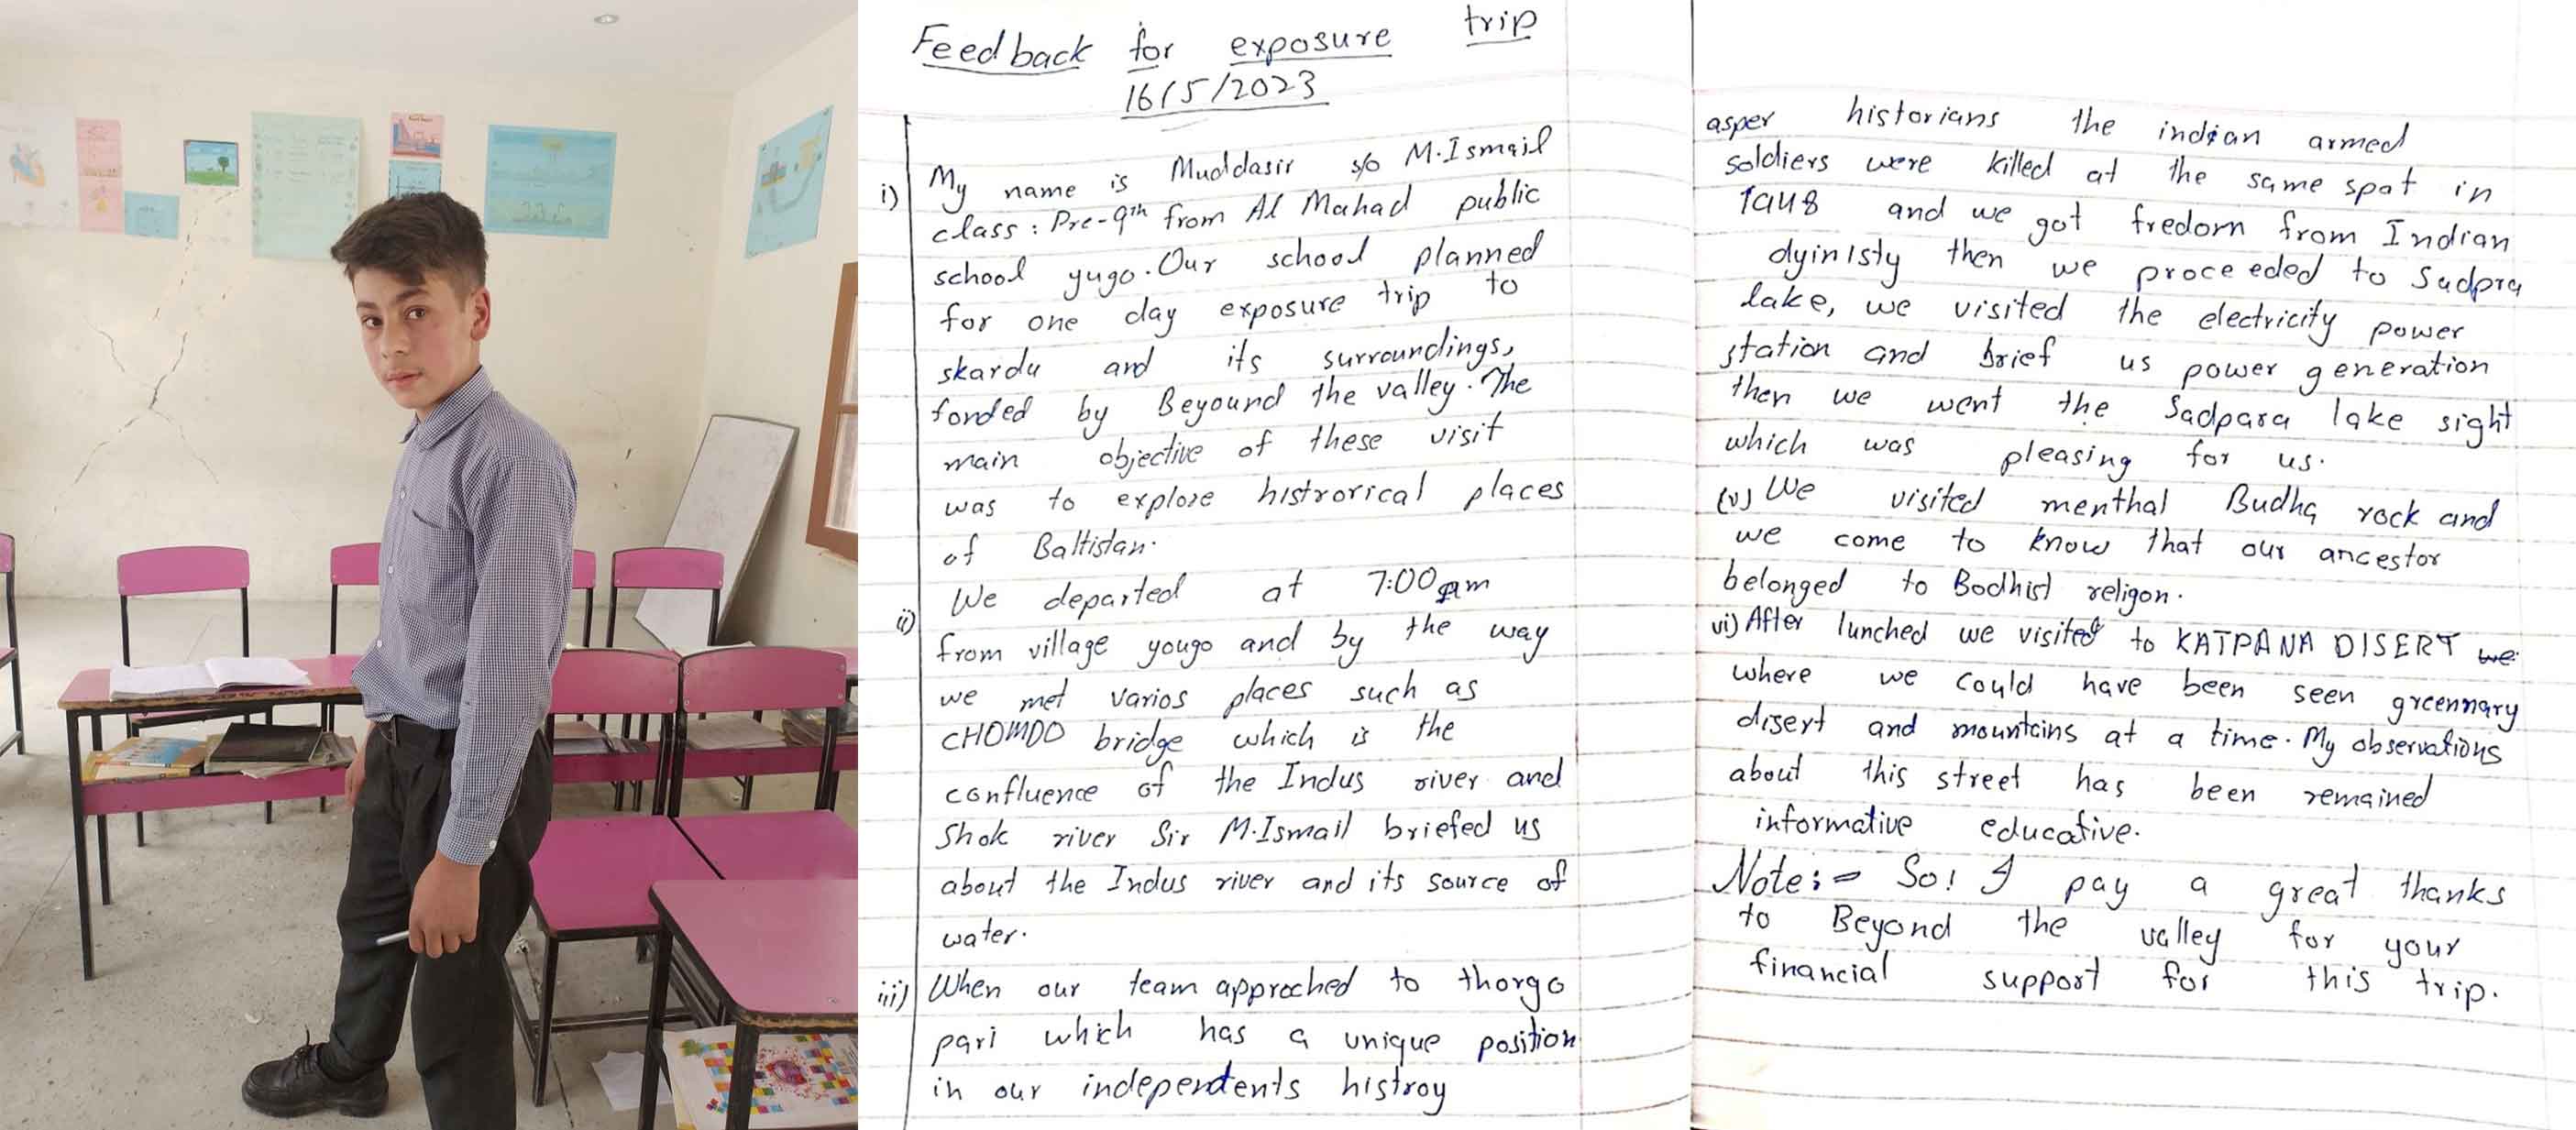 Feedback for exposure trip
16/5/2023
i) My name is Muddasir s/o M.Ismail
class: Pre-9th from Al Mahad public
school yugo. Our school planned
for one day exposure trip to
skardu and its surroundings,
fonded by Beyound the valley. The
main objective of these visit
was to explore histrorical places
of Baltistan.
ii) We departed at 7:00 am
from village yougo and by the way
we met varios places such as
CHOMDO bridge which is the
confluence of the Indus river and
Shok river Sir M.Ismail briefed us
about the Indus river and its source of
water.
iii) When our team approched to thorgo
pari which has a unique position
in our independents histroy
asper historians the indian armed
soldiers were killed at the same spat in
1948 and we got fredom from Indian
dyinisty then we proceeded to Sadpra
lake, we visited the electricity power
station and brief us power generation
then we went the Sadpara lake sight
which was pleasing for us.
(v) We visited menthal Budha rock and
we come to know that our ancestor
belonged to Bodhist religon.
vi) After lunched we visited to KATPANA DISERT we
where we could have been seen greennary
disert and mountains at a time. My observations
about this street has been remained
informative educative.
Note:- So! I pay a great thanks
to Beyond the valley for your
financial support for this trip.